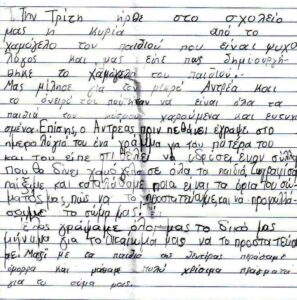 Την Τρίτη ήρθε στο σχολείο
μας η Κυρία από το
χαμόγελο του παιδιού που είναι ψυχο
λόγος και μας είπε πως δημιουργή-
θηκε το χαμόγελο του παιδιού.
Μας μίλησε για τον μικρό Αντρέα και
το όνειρό του που ήταν να είναι όλα τα
παιδιά του κόσμου χαρούμενα και ευτυχι
σμένα. Επίσης ο Αντρέας πριν πεθάνει έγραψε στο
ημερολόγιο του ένα γράμμα για τον πατέρα του
και του είπε ότι θέλει να ιδρύσει έναν σύλλο
που θα δίνει χαμόγελο σε όλα τα παιδιά.
παίξαμε και καταλάβαμε ποια είναι τα όρια του σώ
ματός μας, πώς να το προστατεύουμε, και να
το σώμα μας.
Έτσι γράψαμε όλοι μας το δικό μας
μήνυμα για το δικαίωμά μας να το προστατεύου
με. Μαζί με τα παιδιά της περάσαμε
όμορφα και μάθαμε πολύ χρήσιμα πράγματα
για το σώμα μας.